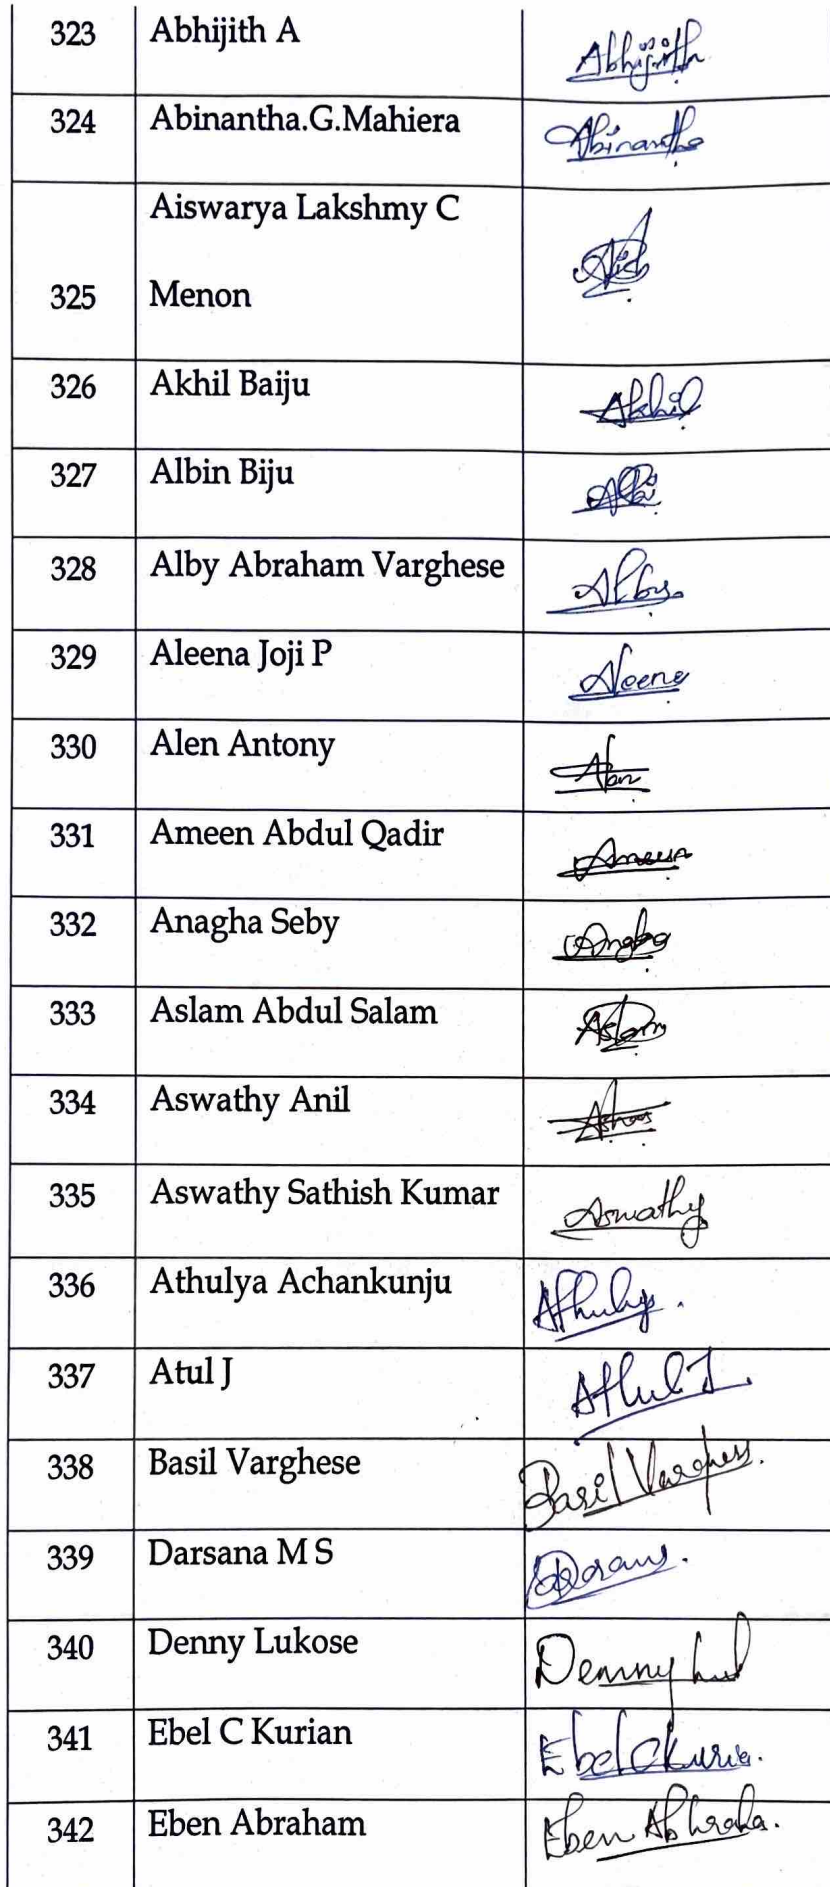 323 Abhijith A Abhijith
324 Abinantha.G.Mahiera Abinantha
Aiswarya Lakshmy C
325 Menon Aish
326 Akhil Baiju Akhil
327 Albin Biju Albi
328 Alby Abraham Varghese Alby
329 Aleena Joji P Aleena
330 Alen Antony Alan
331 Ameen Abdul Qadir Ameen
332 Anagha Seby
333 Aslam Abdul Salam Aslam
334 Aswathy Anil
335 Aswathy Sathish Kumar Aswathy
336 Athulya Achankunju Athulya
337 Atul J Athul J.
338 Basil Varghese Basil Varghese.
339 Darsana M S
340 Denny Lukose Denny
341 Ebel C Kurian Ebel C Kuria.
342 Eben Abraham Eben